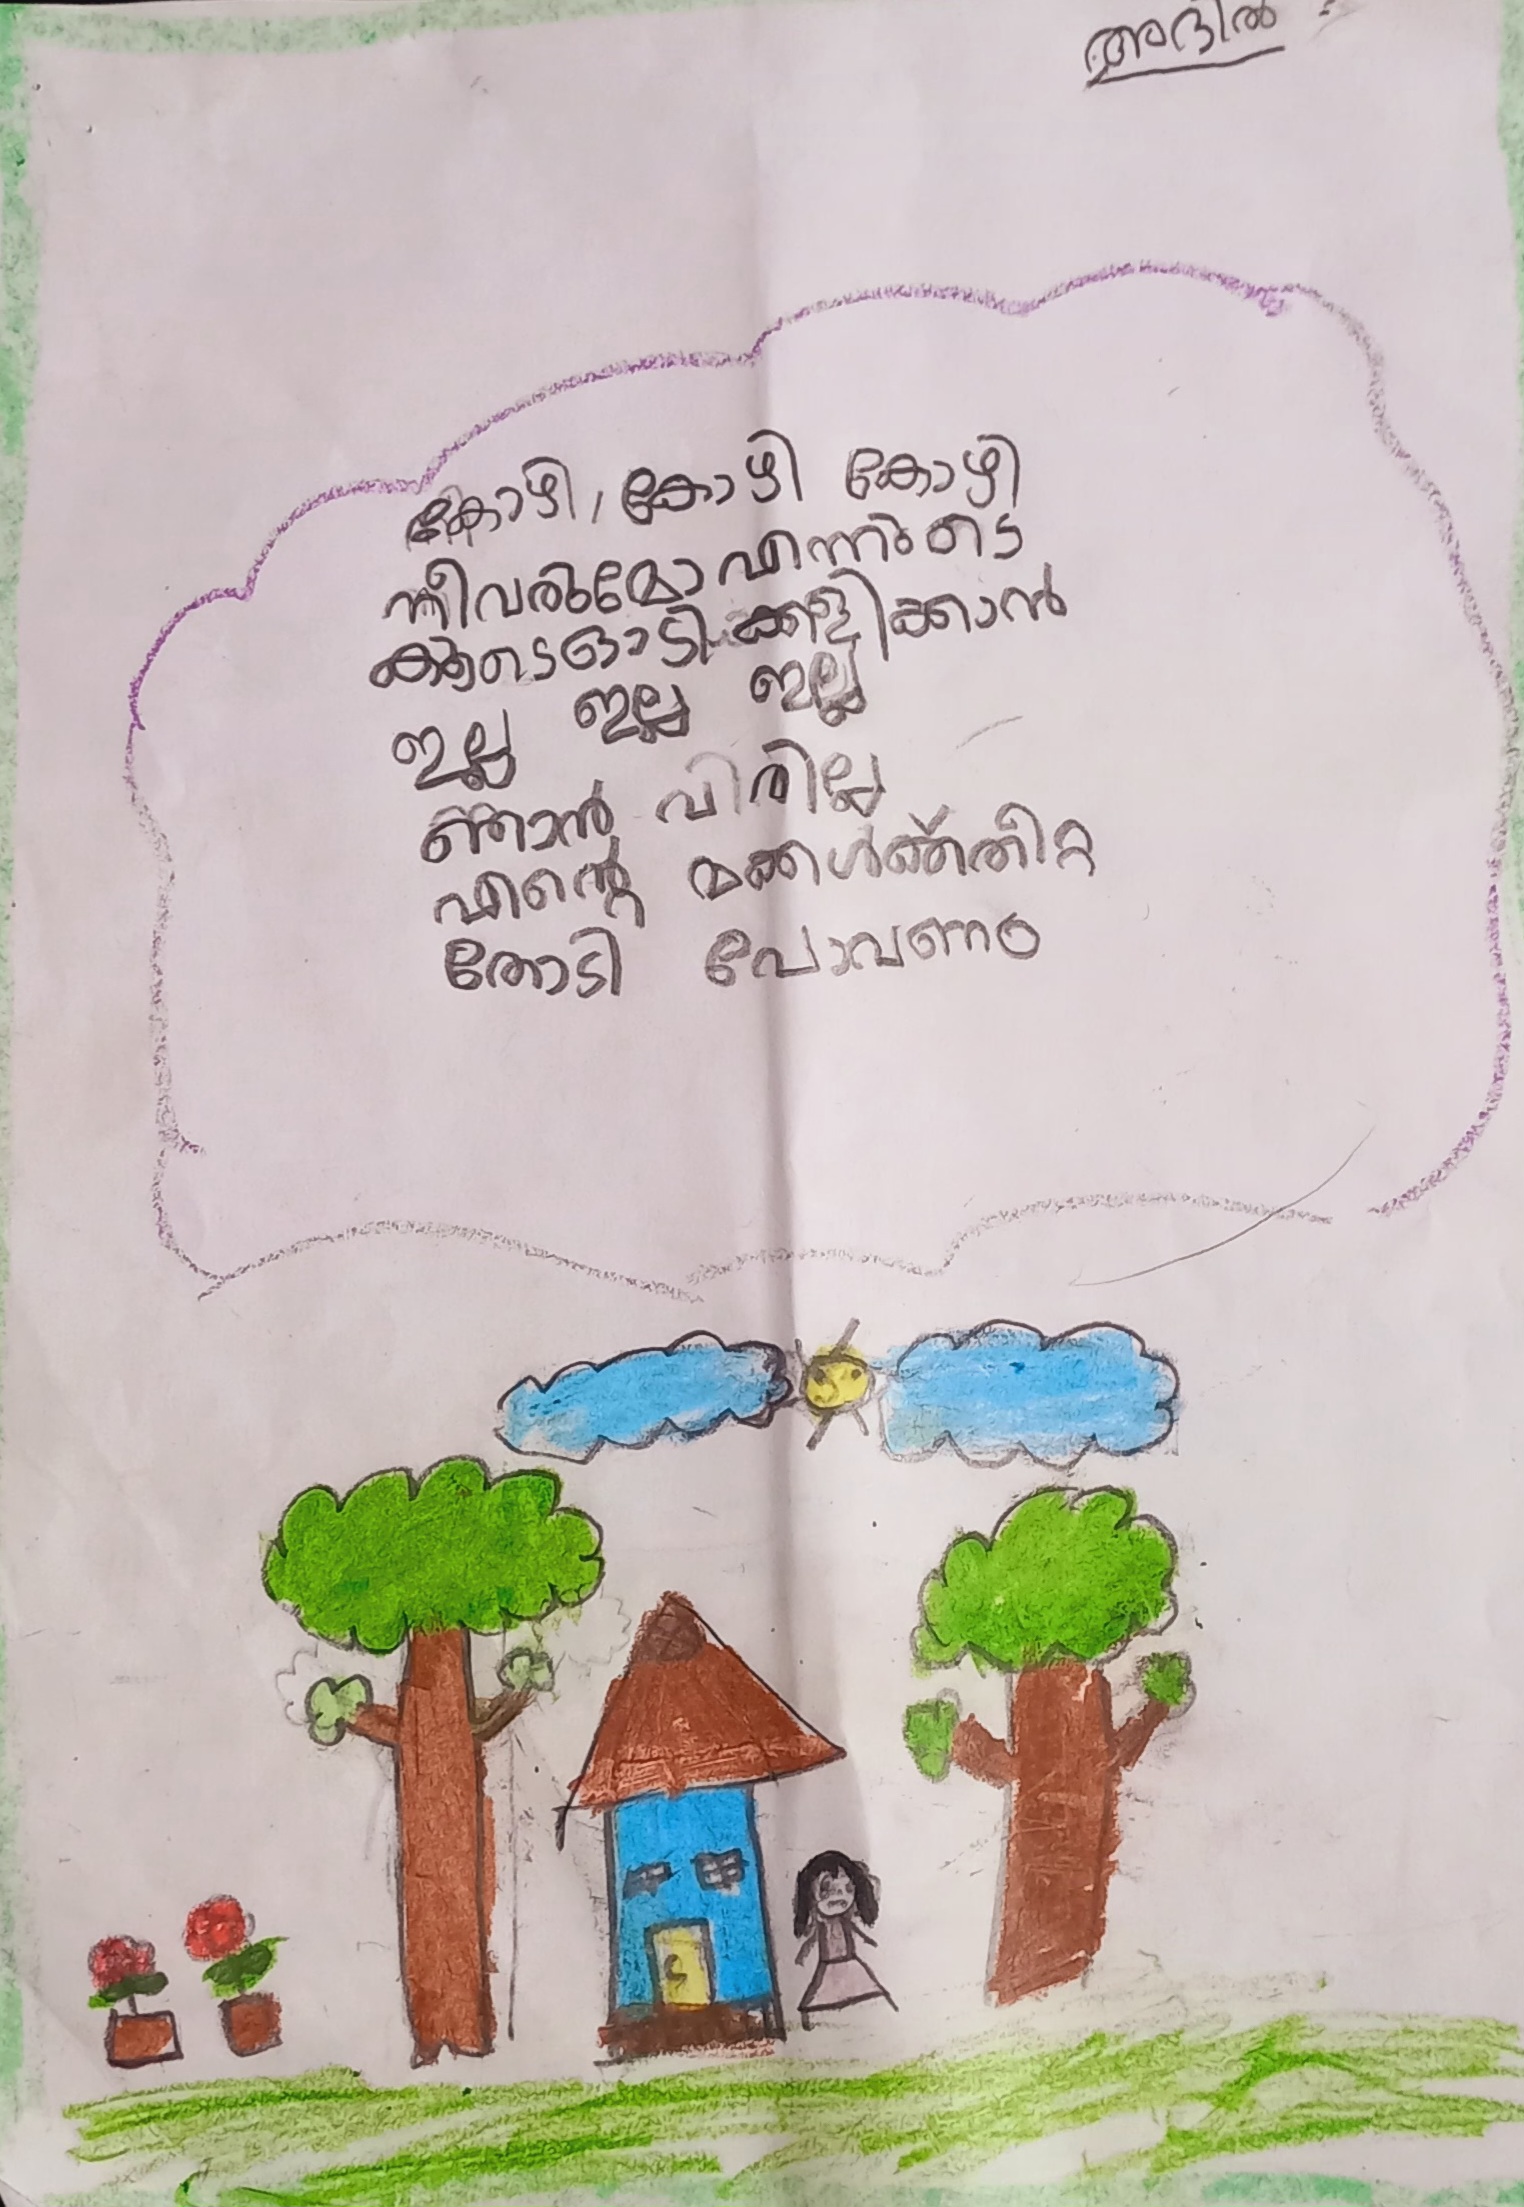 അദിൽ
കോഴി, കോഴി കോഴി
നീവരുമോ എന്നുടെ
കൂടെഓടി ക്കളിക്കാൻ
ഇല്ല ഇല്ല ഇല്ല
ഞാൻ വിരില്ല
എന്റെ മക്കൾക്ക്തീറ്റ
തോടി പോവണം